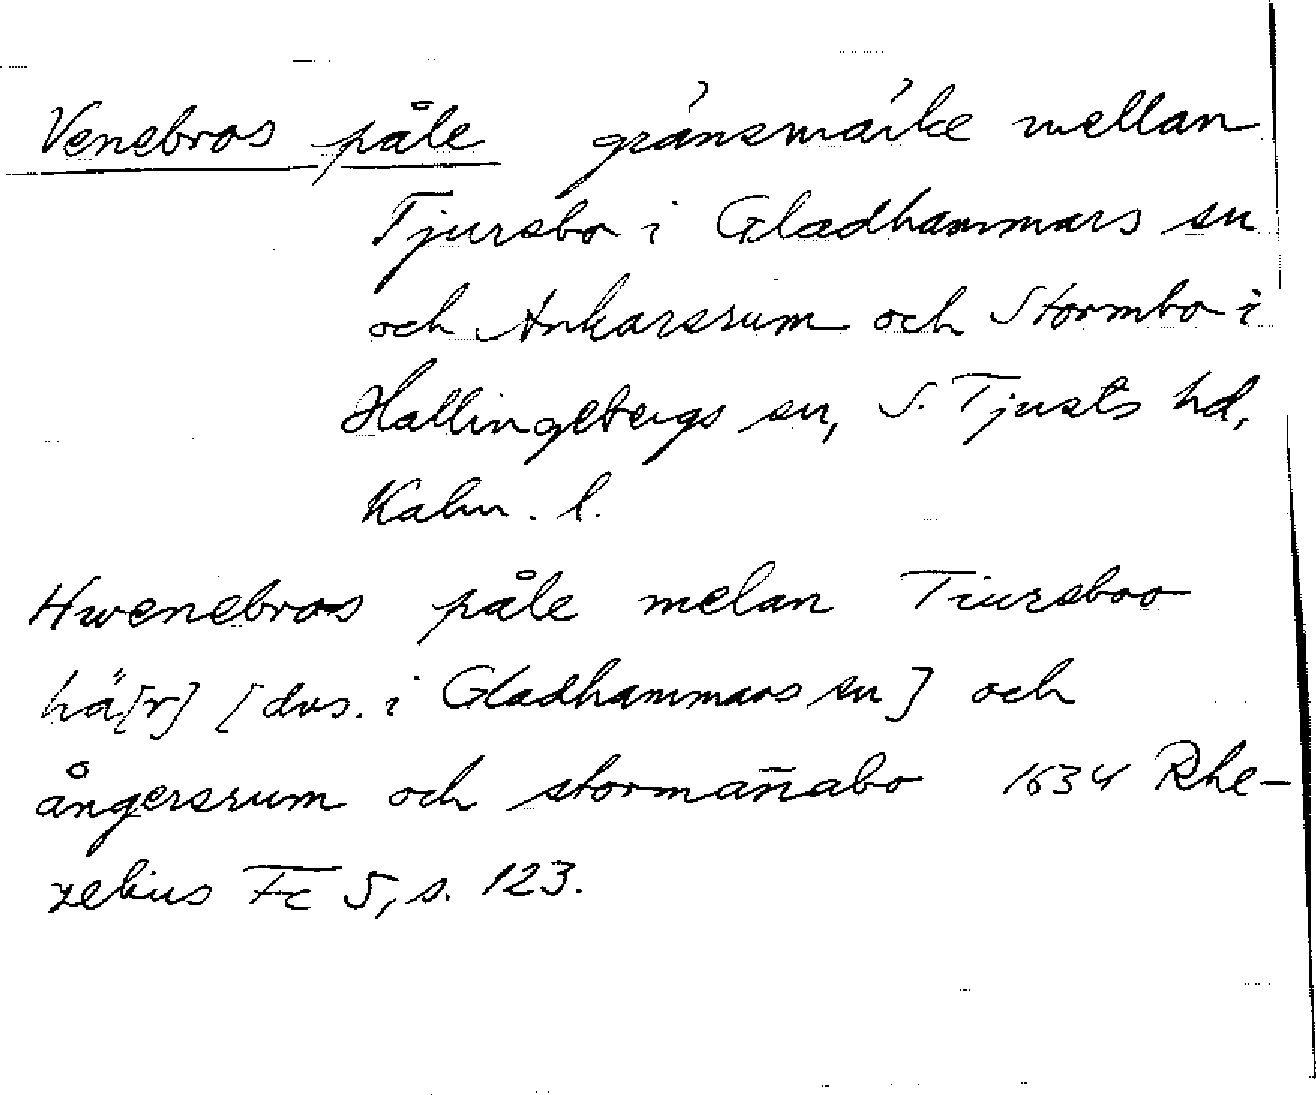 Venebros påle gränsmärke mellan
Tjursbo i Gladhammars sn
och Ankarsrum och Stormbo i
Hallingebergs sn, S. Tjusts hd,
Kalm. l.
Hwenebros påle melan Tiursboo
hä[r] [dvs. i Gladhammars sn] och
ångersrum och storman̄abo 1634 Rhe-
zelius Fc 5, s. 123.